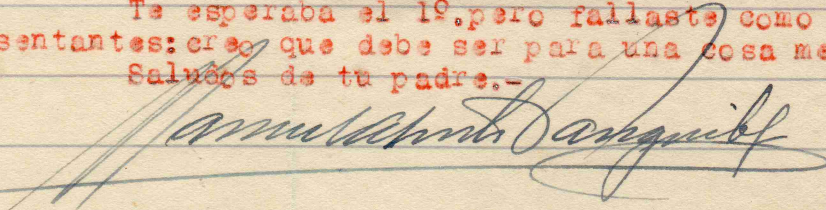 Te esperaba el 1º.pero fallaste como
sentantes:creo que debe ser para una cosa me
Saludos de tu padre.-
Manuel